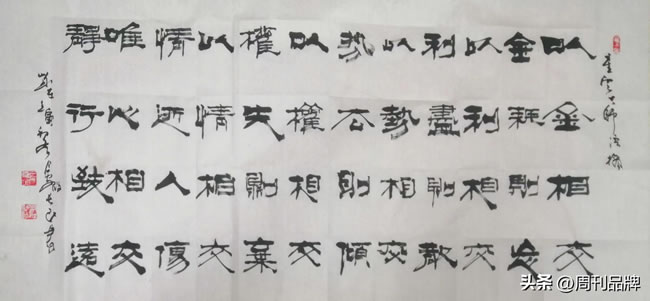 星雲大師
以金相交
金耗則忘
以利相交
利盡則散
以勢相交
勢去則傾
以權相交
權失則棄
以情相交
情逝人傷
唯心相交
靜行致遠
头条 @周刊品牌